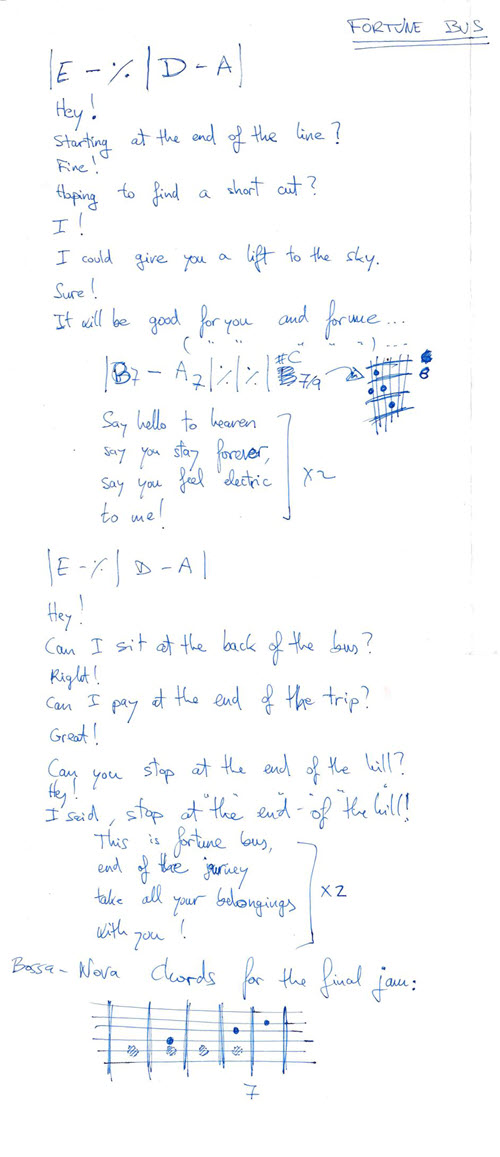 FORTUNE BUS
|E - ٪ | D - A|
Hey!
Starting at the end of the line?
Fine!
Hoping to find a short cut?
I!
I could give you a lift to the sky.
Sure!
It will be good for you and for me...
( " " " " " ) ...
|B7 - A7|٪|٪| #C 7/9
B
Say hello to heaven
say you stay forever,
say you feel electric
to me!
x2
|E - ٪ | D - A|
Hey!
Can I sit at the back of the bus?
Right!
Can I pay at the end of the trip?
Great!
Can you stop at the end of the hill?
Hey!
I said, stop at "the" end - of "the hill!
This is fortune bus,
end of the journey
take all your belongings
with you!
x2
Bossa-Nova chords for the final jam:
7